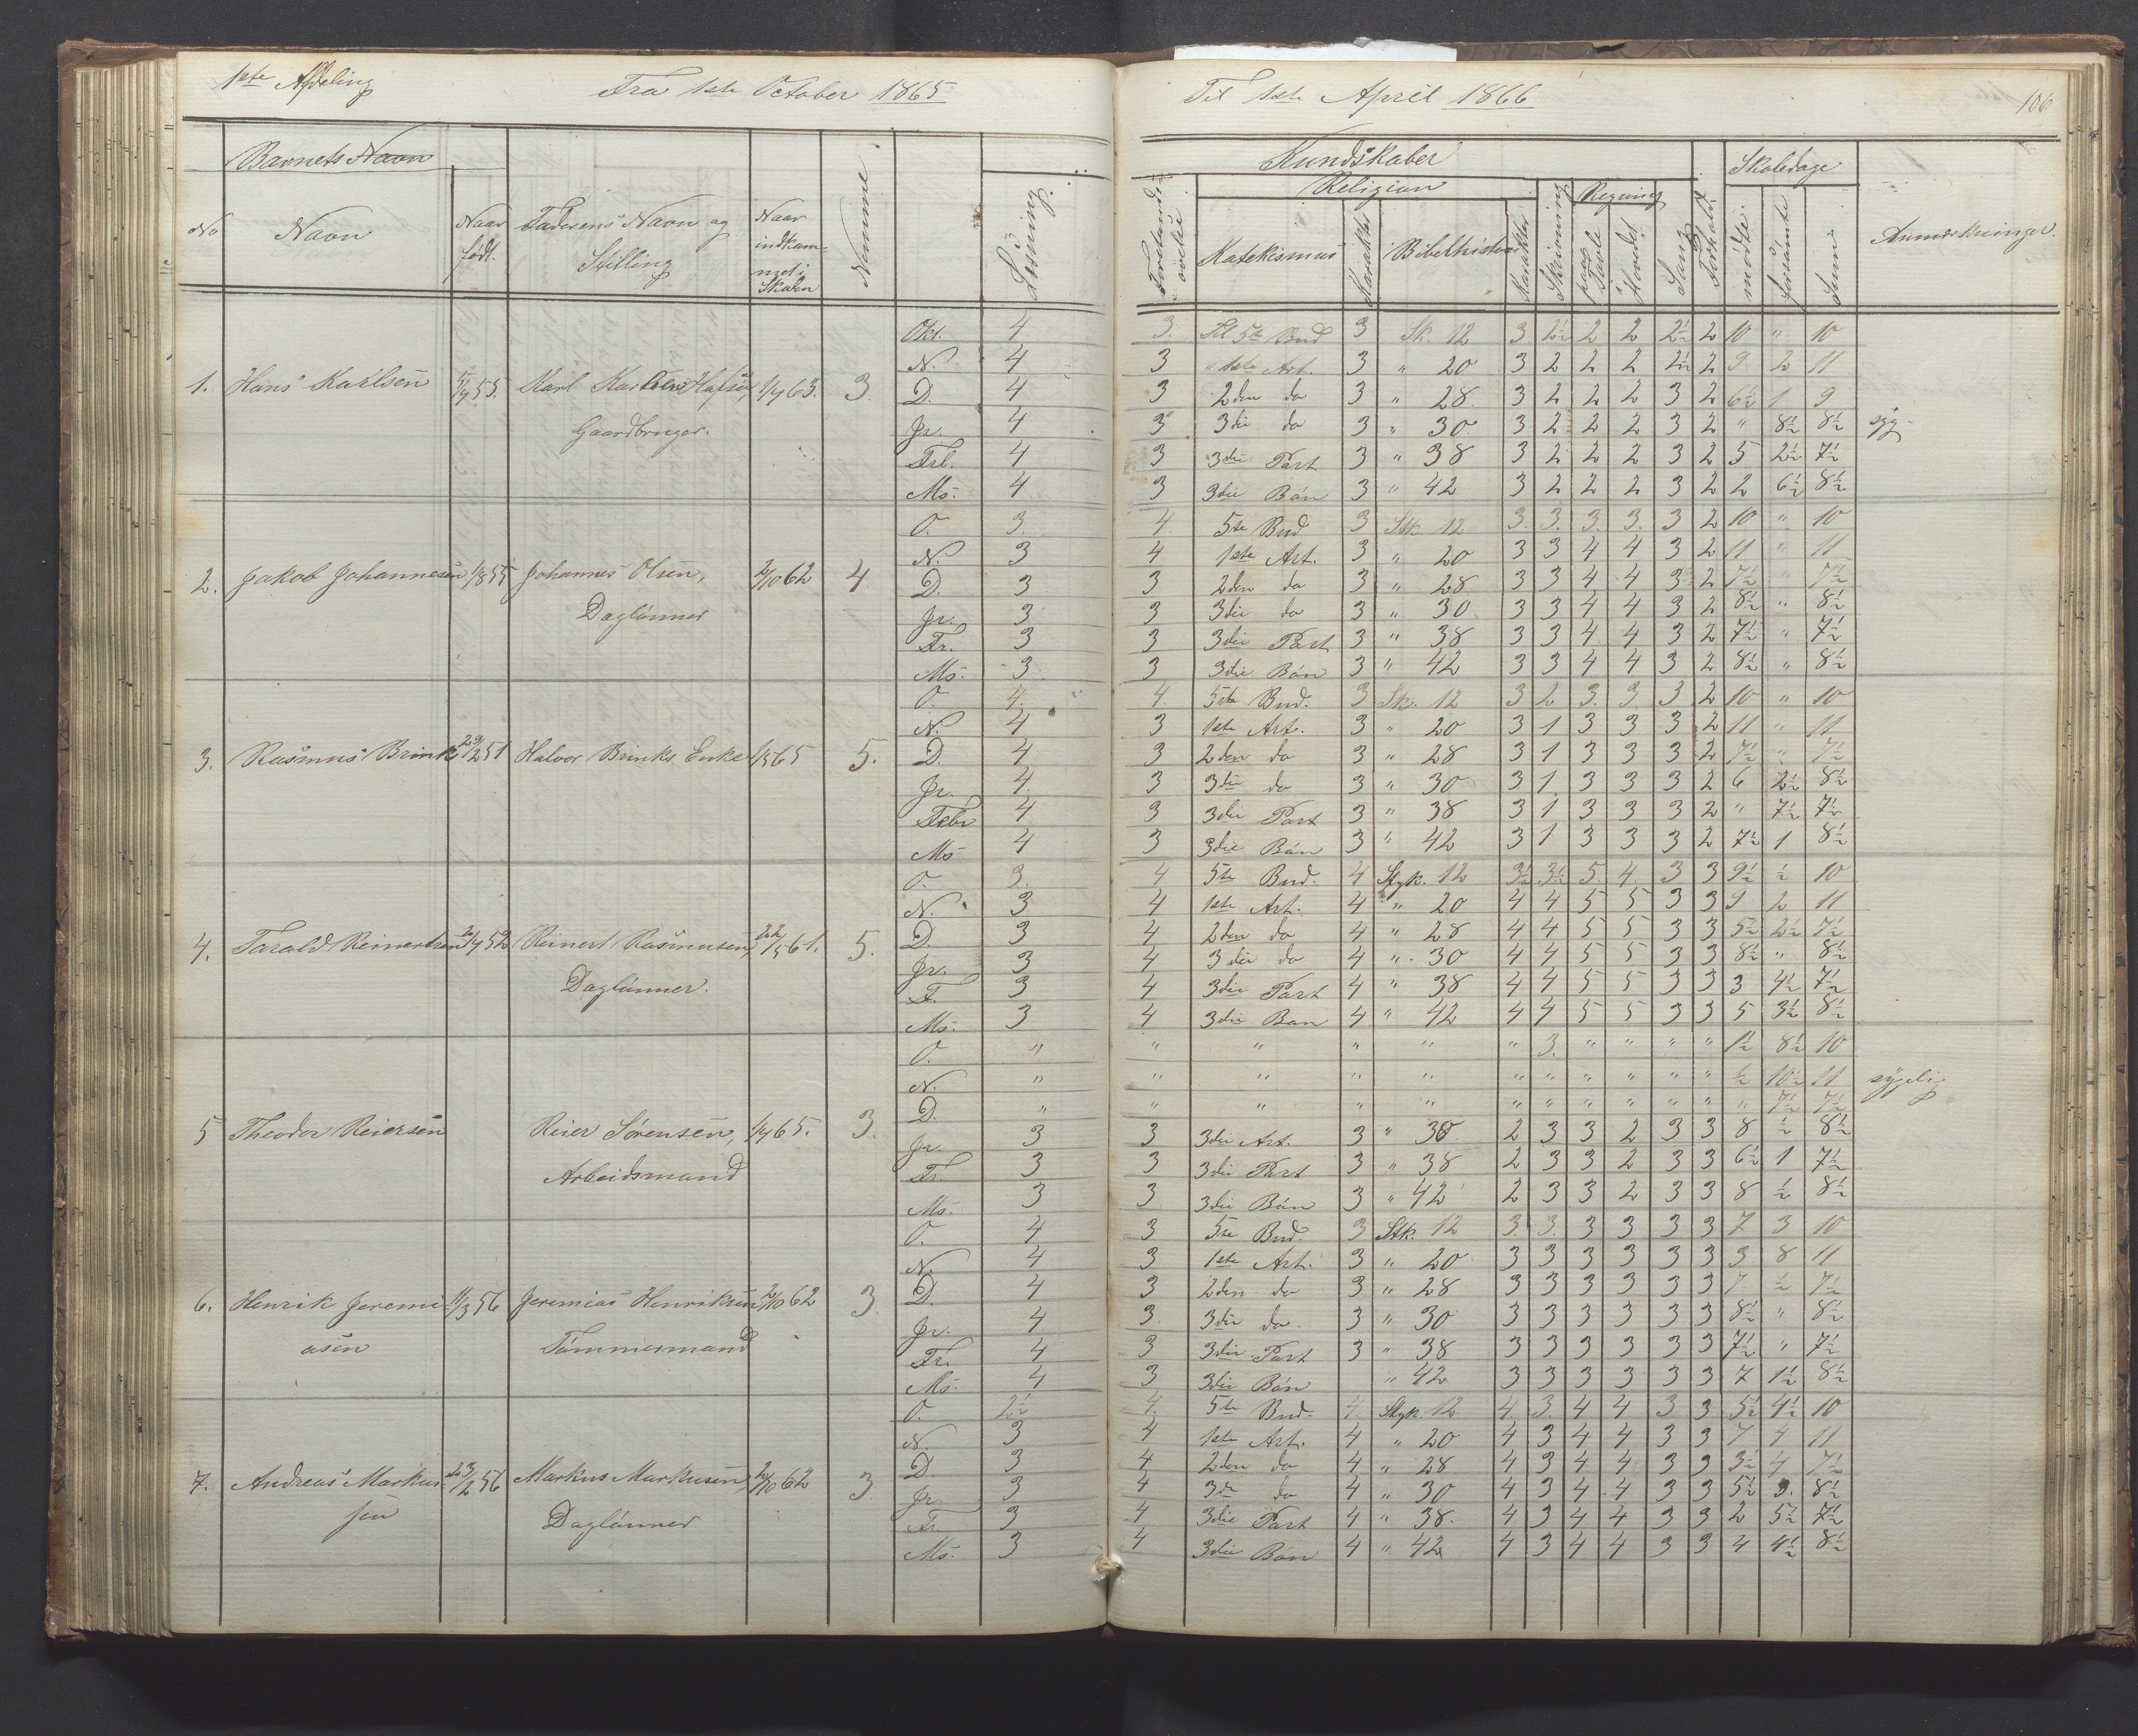 1ste Afdeling Fra 1ste October 1865 Til 1ste April 1866 106
Barnets Navn Kundskaber Skoledage
Religion Regning
No Navn Naar født. Faderens Navn og Stilling Naar indkommet i Skolen Nemme Læsning Forstands øvelse Katekismus Karakter Bibelhistorie Karakter Skrivning paa Tavle i Hovedet Sang Forhold mødte. forsømte Sum Anmærkninger.
Okt. 4 3. Til 5te Bud 3 Sk. 12 3 2½ 2 2 2½ 2 10 " 10
N. 4 3 " 1ste Art. 3 " 20 3 2 2 2 2½ 2 9 2 11
1. Hans Karlsen 55. Karl Karlsen 1/4 63. 3. D. 4 3 2den do 3 " 28. 3 2 2 2 3 2 6½ 1 9
Gaardbruger. Jr. 4 3 3die do 3 " 30 3 2 2 2 3 2 " 8½ 8½ syg
Feb. 4 3 3die Part 3 " 38 3 2 2 2 3 2 5 2½ 7½
Ms. 4 3 3die Bøn 3 " 42 3 2 2 2 3 2 2 6½ 8½
O. 3 4. 5te Bud 3 Stk. 12 3. 3. 3. 3. 3 2 10 " 10
N. 3 4 1ste Art. 3 " 20 3 3 4 4 3 2 11 " 11
2. Jakob Johannesen 1/8 55 Johannes Olsen, 2/10 62 4 D. 3 3 2den do 3 " 28 3 3 4 4 3 2 7½ " 7½
Daglønner Jr. 3 3 3die do 3 " 30 3 3 4 4 3 2 8½ " 8½
Fr. 3 3 3die Part 3 " 38 3 3 4 4 3 2 7½ " 7½
Ms. 3 3 3die Bøn 3 " 42 3 3 4 4 3 2 8½ " 8½
O. 4. 4. 5te Bud. 3 Sk. 12 3 2 3. 3. 3 2 10 " 10
N. 4 3 1ste Art. 3 " 20 3 1 3 3 3 2 11 " 11
3. Rasmus Brink 23/2 51 Halvor Brinks Enke 1/5 65 5. D. 4 3 2den do 3 " 28 3 1 3 3 3 2 7½ " 7½
Jr. 4. 3 3die do 3 " 30 3 1. 3 3 3 2 6 2½ 8½
Febr 4 3 3die Part 3 " 38 3 1 3 3 3 2 " 7½ 7½
Ms 4 3 3die Bøn 3 " 42 3 1 3 3 3 2 7½ 1 8½
O. 3. 4 5te Bud. 4 Styk. 12 3½ 3½ 5. 4. 3 3 9½ ½ 10
N. 3 4 1ste Art. 4 " 20 4 4 5 5 3 3 9 2 11
4. Tarald Reinertsen 52 Reinert Rasmusen, 22/5 61. 5. D. 3 4 2den do 4 " 28 4 4 5 5 3 3 5½ 2½ 7½
Daglønner. Jr. 3 4 3die do 4 " 30 4 4 5 5 3 3 8½ " 8½
F. 3 4 3die Part 4 " 38 4 4 5 5 3 3 3 4½ 7½
Ms. 3 4 3die Bøn 4 " 42 4 4 5 5 3 3 5 3½ 8½
O. " " " " " " 3. " " " " 1½ 8½ 10
N. " " " " " " " " " " " ½ 10½ 11 sygelig
D. " " " " " " " " " " " " 7½ 7½
5 Theodor Reiersen Reier Sørensen, 1/4 65. 3. Jr. 3 3 3die Art. 3 " 30 2 3 3 2 3 3 8 ½ 8½
Arbeidsmand Fr. 3 3 3die Part 3 " 38 2 3 3 2 3 3 6½ 1 7½
Ms. 3 3 3die Bøn 3 " 42 2 3 3 2 3 3 8 ½ 8½
O. 4 3 5te Bud 3 Stk. 12 3. 3. 3 3 3 3 7 3 10
N. 4 3 1ste Art. 3 " 20 3 3 3 3 3 3 3 8 11
6. Henrik Jeremi 11/3 56 Jeremias Henriksen 2/10 62 3. D. 4 3 2den do 3 " 28 3 3 3 3 3 3 7 ½ 7½
asen Tømmermand Jr. 4 3. 3die do 3 " 30 3 3 3 3 3 3 8½ " 8½
Fr. 4 3 3die Part 3 " 38 3 3 3 3 3 3 7½ " 7½
Ms. 4 3 3die Bøn " 42 3 3 3 3 3 3 7 1½ 8½
O. 2½ 4. 5te Bud. 4. Styk. 12 4. 3. 4 4 3 3 5½ 4½ 10
N. 3 4 1ste Art. 4 " 20 4 3 4 4 3 3 7 4 11
7. Andreas Markus 23/2 56 Markus Markusen, 2/10 62 3 D. 3 4 2den do 4 " 28 4 3 4 4 3 3 3½ 4 7½
sen Daglønner Jr. 3 4 3die do 4 " 30 4 3 4 4 3 3 5½ 3. 8½
Fr. 3 4 3die Part 4 " 38. 4 3 4 4 3 3 2 5½ 7½
Ms. 3 4 3die Bøn 4 " 42 4 3 4 4 3 3 4 4½ 8½